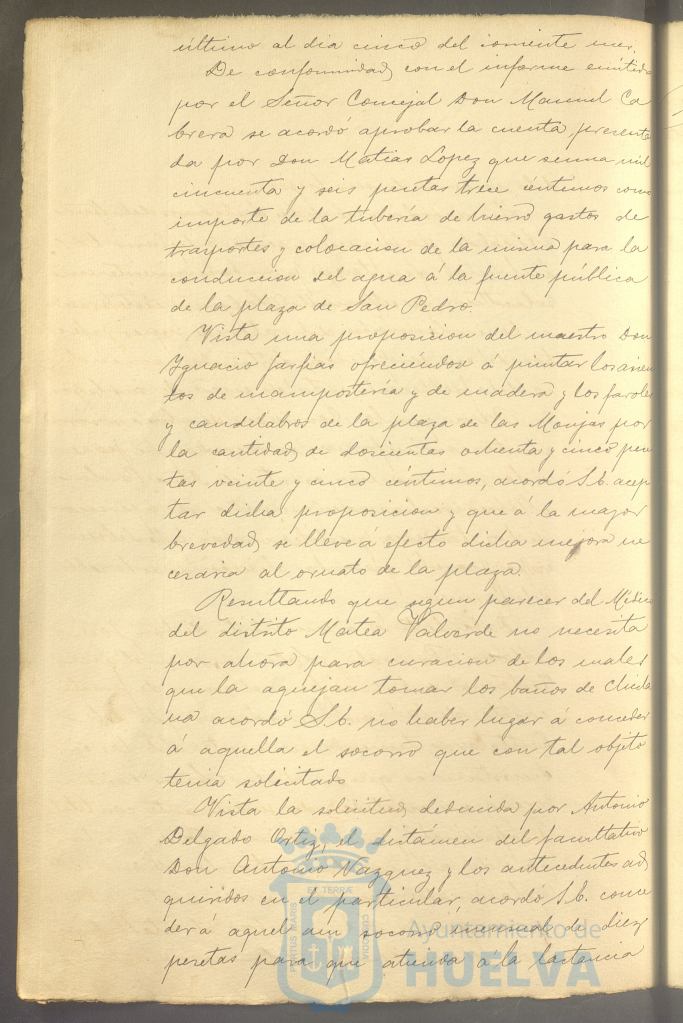 último al dia cinco del corriente mes.
De conformidad con el informe emitido
por el Señor Concejal Don Manuel Ca
brera se acordó aprobar la cuenta presenta
da por Don Matias Lopez que suma mil
cincuenta y seis pesetas trece céntimos como
importe de la tubería de hierro gastos de
trasportes y colocacion de la misma para la
conduccion del agua á la fuente pública
de la plaza de San Pedro.
Vista una proposicion del maestro Don
Ygnacio farfias ofreciéndose á pintar los asien
tos de mampostería y de madera y los faroles
y candelabros de la plaza de las Monjas por
la cantidad de doscientas ochenta y cinco pese
tas veinte y cinco céntimos, acordó S.E. acep
tar dicha proposicion y que á la mayor
brevedad se lleve á efecto dicha mejora ne
cesaria al ornato de la plaza.
Resultando que segun parecer del Médico
del distrito Matea Valverde no necesita
por ahora para curacion de los males
que la aquejan tomar los baños de Chicla
na acordó S.E. no haber lugar á conceder
á aquella el socorro que con tal objeto
tenia solicitado
Vista la solicitud deducida por Antonio
Delgado Ortiz, el dictámen del facultativo
Don Antonio Vazquez y los antecedentes ad
quiridos en el particular, acordó S.E. conce
der á aquel un socorro mensual de diez
pesetas para que atienda á la lactancia
PORTUS MARIS ET TERRÆ CUSTODIA
Ayuntamiento de
HUELVA